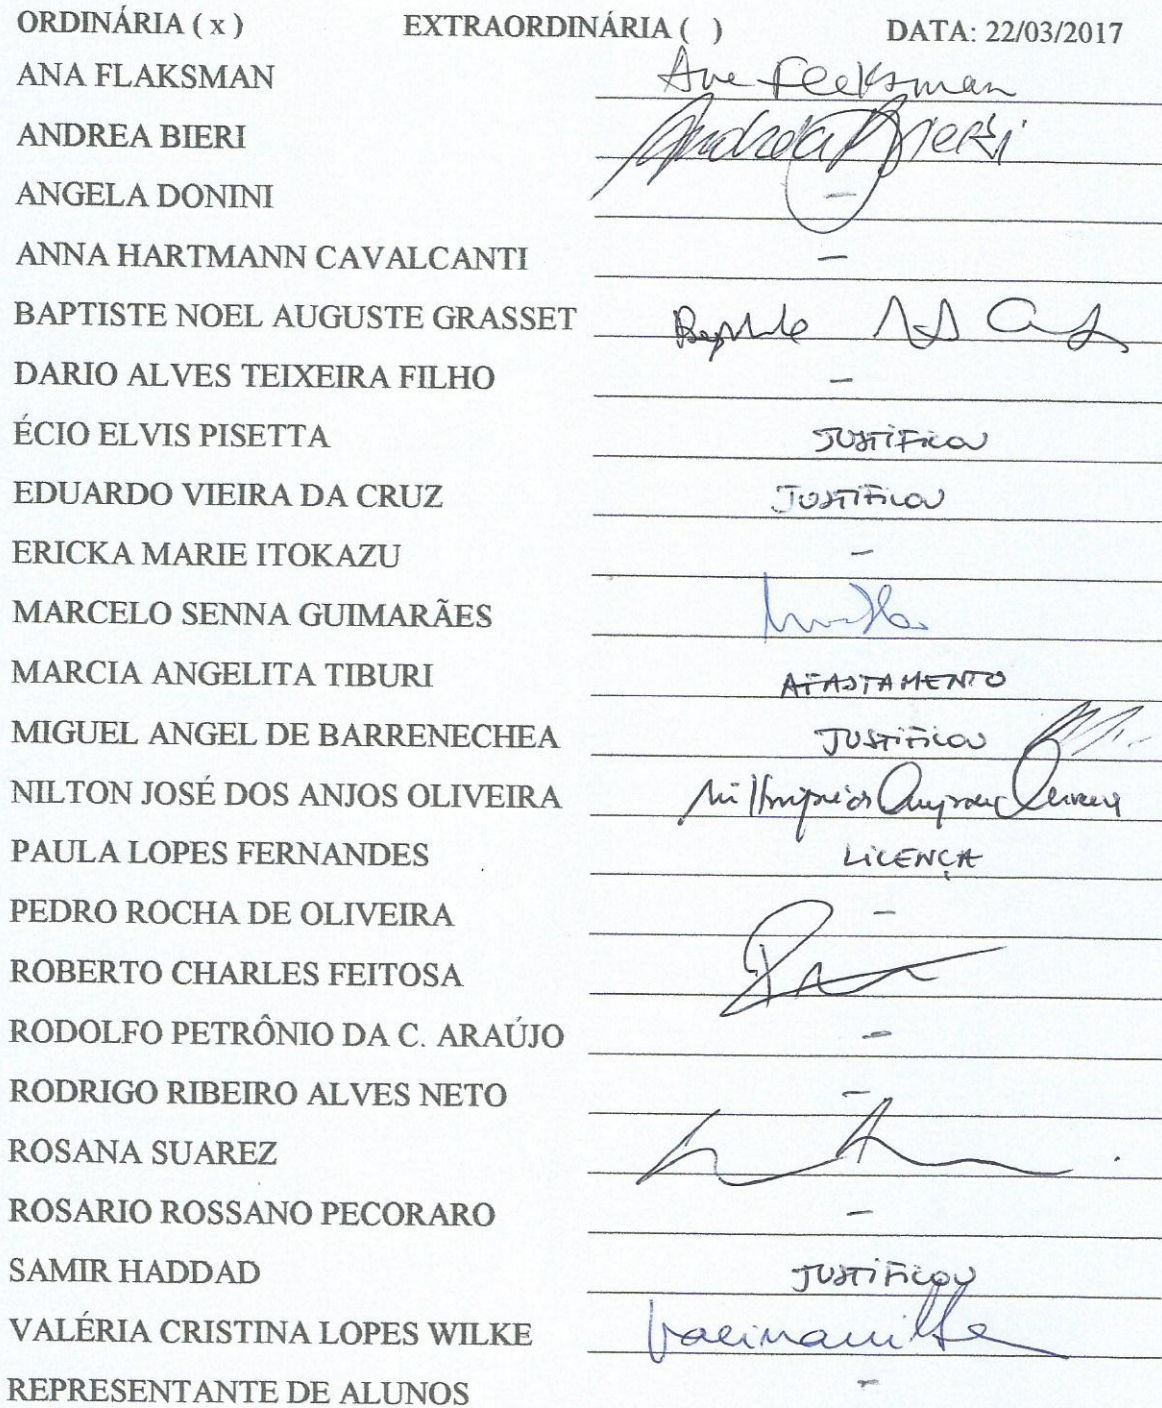 ORDINÁRIA ( x ) EXTRAORDINÁRIA ( ) DATA: 22/03/2017
ANA FLAKSMAN Ana Flaksman
ANDREA BIERI Andrea Bieri
ANGELA DONINI –
ANNA HARTMANN CAVALCANTI –
BAPTISTE NOEL AUGUSTE GRASSET Baptiste
DARIO ALVES TEIXEIRA FILHO –
ÉCIO ELVIS PISETTA JUSTIFICOU
EDUARDO VIEIRA DA CRUZ JUSTIFICOU
ERICKA MARIE ITOKAZU –
MARCELO SENNA GUIMARÃES
MARCIA ANGELITA TIBURI AFASTAMENTO
MIGUEL ANGEL DE BARRENECHEA JUSTIFICOU
NILTON JOSÉ DOS ANJOS OLIVEIRA
PAULA LOPES FERNANDES LICENÇA
PEDRO ROCHA DE OLIVEIRA –
ROBERTO CHARLES FEITOSA
RODOLFO PETRÔNIO DA C. ARAÚJO –
RODRIGO RIBEIRO ALVES NETO –
ROSANA SUAREZ
ROSARIO ROSSANO PECORARO –
SAMIR HADDAD JUSTIFICOU
VALÉRIA CRISTINA LOPES WILKE
REPRESENTANTE DE ALUNOS –